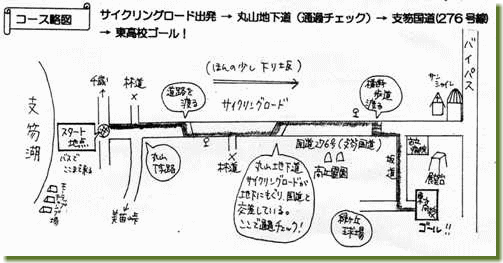 コース略図
サイクリングロード出発 → 丸山地下道 (通過チェック) → 支笏国道(276号線)
→ 東高校ゴール!
(ほんの少し下り坂)
バイパス
千歳
林道
道路を渡る
サイクリングロード
横断歩道渡る
サンシャイル
支笏湖
スタート地点
バスでここまで来る
丸山
林道
国道276号(支笏国道)
高丘霊園
坂道
展望台
美笛峠
丸山地下道
サイクリングロードが
地下にもぐり、国道と
交差している。
ここで通過チェック!
緑ヶ丘球場
東高校
ゴール!!